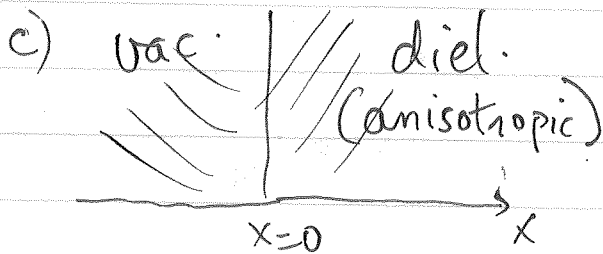 c) vac. diel.
(anisotropic)
x=0 x